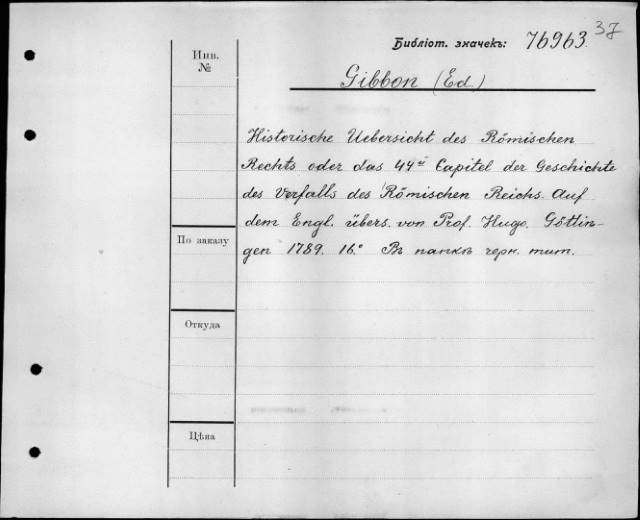 37
Библіот. значекъ: 76963.
Инв.
№
Gibbon (Ed.)
Historische Uebersicht des Römischen
Rechts oder das 44te Capitel der Geschichte
des Verfalls des Römischen Reichs. Auf
dem Engl. übers. von Prof. Hugo. Göttin-
gen 1789. 16.° Въ папкѣ черн. тит.
По заказу
Откуда
Цѣна